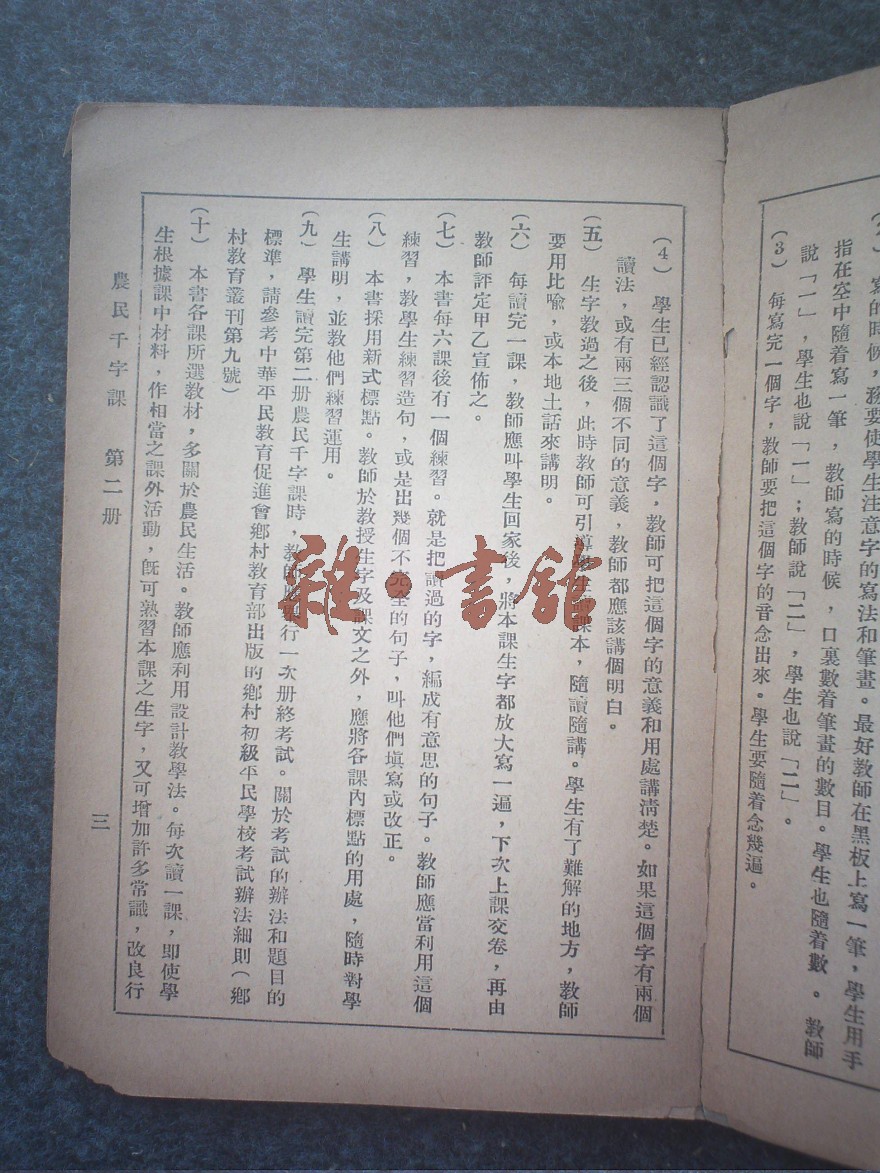 寫的時候，務要使學生注意字的寫法和筆畫。最好教師在黑板上寫一筆，學生用手
指在空中隨着寫一筆，教師寫的時候，口裏數着筆畫的數目。學生也隨着數。教師
說「一」，學生也說「一」；教師說「二」，學生也說「二」。
（3）每寫完一個字，教師要把這個字的音念出來。學生要隨着念幾遍。
（4）學生已經認識了這個字，教師可把這個字的意義和用處講淸楚。如果這個字有兩個
讀法，或有兩三個不同的意義，教師都應該講個明白。
（五）生字教過之後，此時教師可引導學生讀課本，隨讀隨講。學生有了難解的地方，教師
要用比喩，或本地土話來講明。
（六）每讀完一課，教師應叫學生回家後，將本課生字都放大寫一遍，下次上課交卷，再由
教師評定甲乙宣佈之。
（七）本書每六課後有一個練習。就是把讀過的字，編成有意思的句子。教師應當利用這個
練習，教學生練習造句，或是出幾個不完全的句子，叫他們塡寫或改正。
（八）本書採用新式標點。教師於教授生字及課文之外，應將各課內標點的用處，隨時對學
生講明，並教他們練習運用。
（九）學生讀完第二册農民千字課時，教師應舉行一次册終考試。關於考試的辦法和題目的
標準，請參考中華平民教育促進會鄉村教育部出版的鄉村初級平民學校考試辦法細則（鄉
村教育叢刊第九號）
（十）本書各課所選教材，多關於農民生活。教師應利用設計教學法。每次讀一課，卽使學
生根據課中材料，作相當之課外活動，旣可熟習本課之生字，又可增加許多常識，改良行
農民千字課 第二册
三
雜·書館